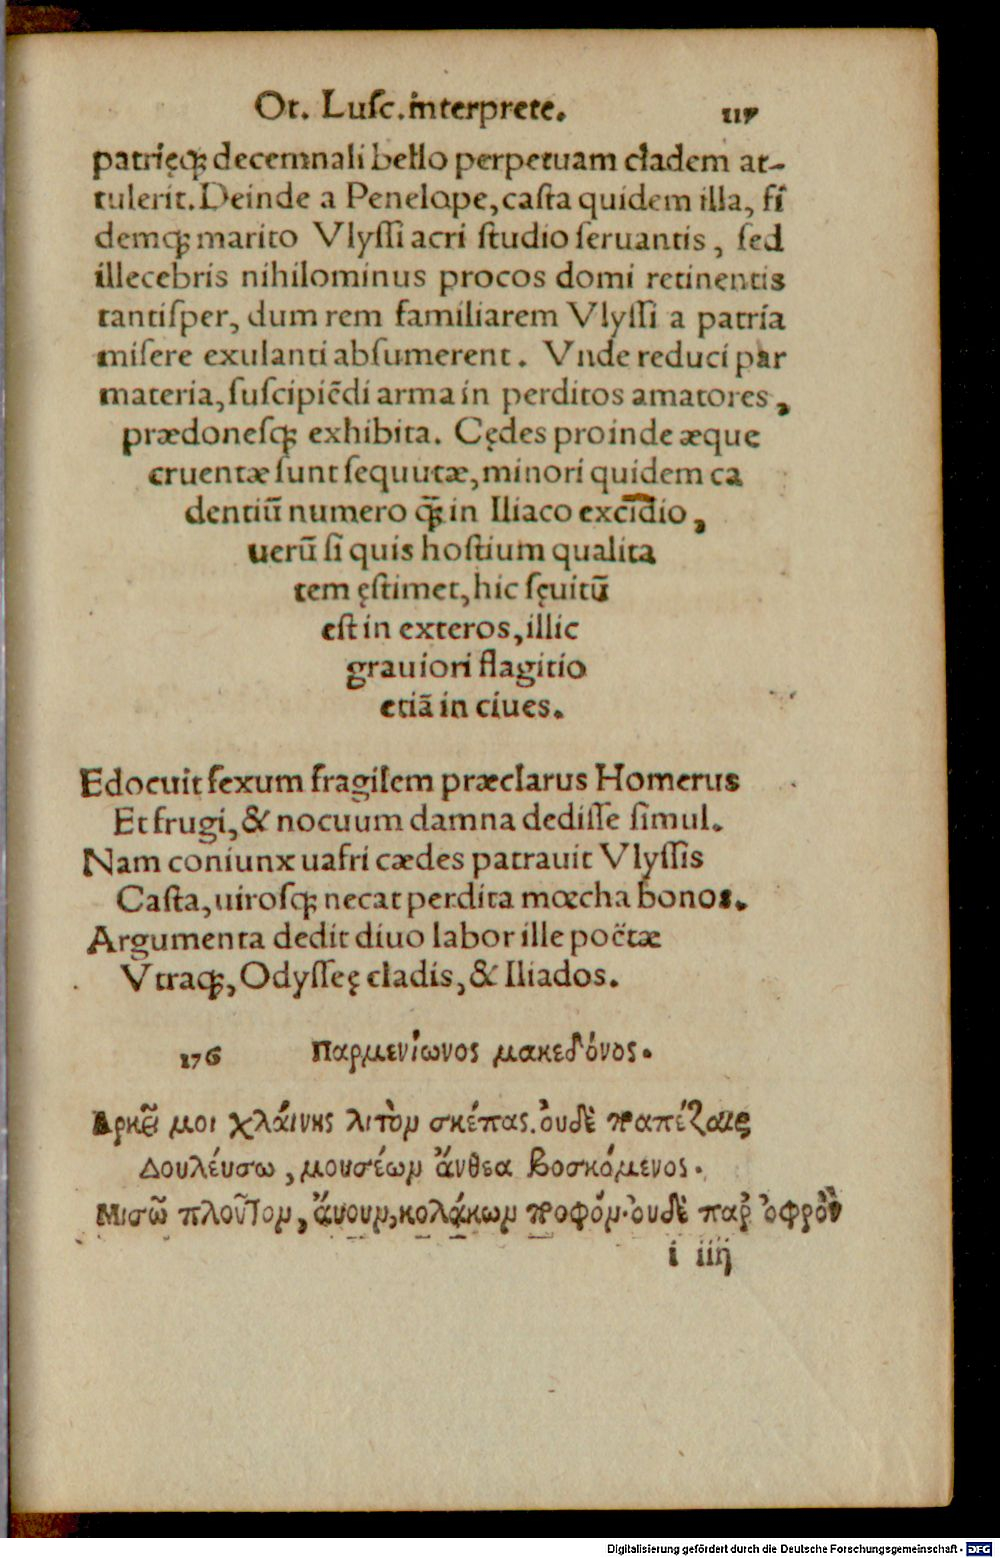 Ot. Lusc. interprete. 117
patrięq́; decennali bello perpetuam cladem at-
tulerit. Deinde a Penelope, casta quidem illa, fi
demq́; marito Vlyssi acri studio seruantis, sed
illecebris nihilominus procos domi retinentis
tantisper, dum rem familiarem Vlyssi a patria
misere exulanti absumerent. Vnde reduci par
materia, suscipiẽdi arma in perditos amatores,
prædonesq́; exhibita. Cędes proinde æque
cruentæ sunt sequutæ, minori quidem ca
dentiũ numero q̃; in Iliaco excidio,
uerũ si quis hostium qualita
tem ęstimet, hic sęuitũ
est in exteros, illic
grauiori flagitio
etiã in ciues.
Edocuit sexum fragilem præclarus Homerus
Et frugi, & nocuum damna dedisse simul.
Nam coniunx uafri cædes patrauit Vlyssis
Casta, uirosq́; necat perdita mœcha bonos.
Argumenta dedit diuo labor ille poëtæ
Vtraq́;, Odysseę cladis, & Iliados.
176 Παρμενίωνος μακεδόνος.
Αρκεῖ μοι χλάινης λιτὸν σκέπας. ὀυδὲ τραπέζαις
Δουλέυσω, μουσέων ἄνθεα βοσκόμενος.
Μισῶ πλοῦτον, ἄνουν, κολάκων τροφόν. ὀυδὲ παρ ὀφρὺν
i iiij
Digitalisierung gefördert durch die Deutsche Forschungsgemeinschaft - DFG